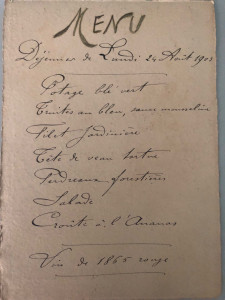 MENU
Déjeuner de Lundi 24 Août 1903
Potage blé vert
Truites au bleu, sauce mousseline
Filet Jardinière
Tête de veau tortue
Perdreaux forestière
Salade
Croûte à l'Ananas
Vin de 1865 rouge